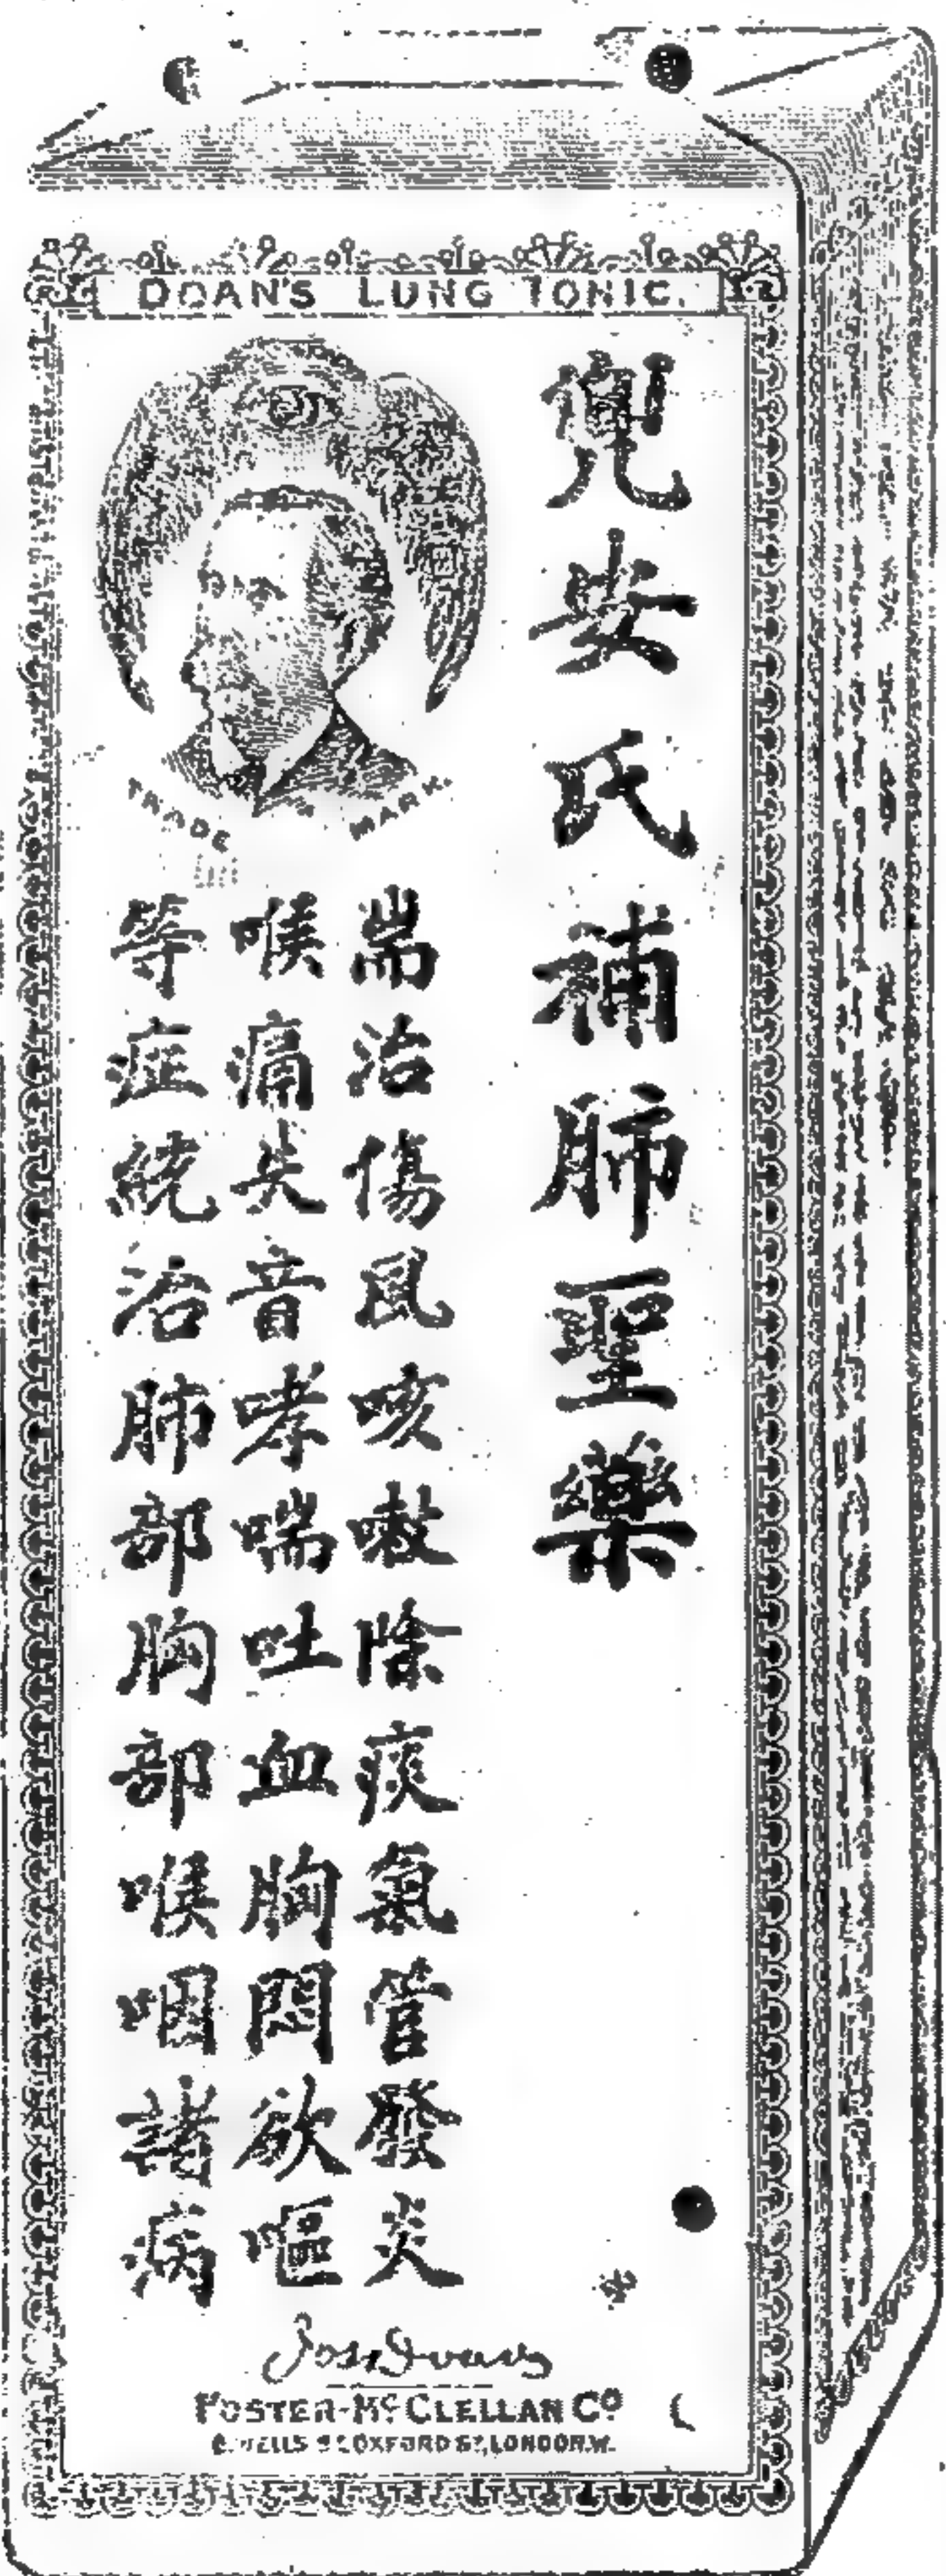 DOAN'S LUNG TONIC.
兜安氏補肺聖藥
TRADE MARK.
耑治傷風咳嗽除痰氣管發炎
喉痛失音哮喘吐血胸悶欲嘔
等症統治肺部胸部喉咽諸病
Jos. Doan
FOSTER-McCLELLAN Co
8, WELLS ST OXFORD ST, LONDON.W.